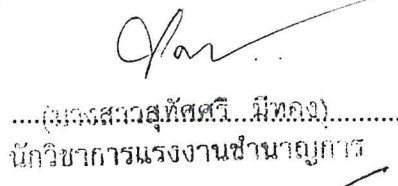 ....(นางสาวสุทัศศรี มีทอง)..........
นักวิชาการแรงงานชำนาญการ